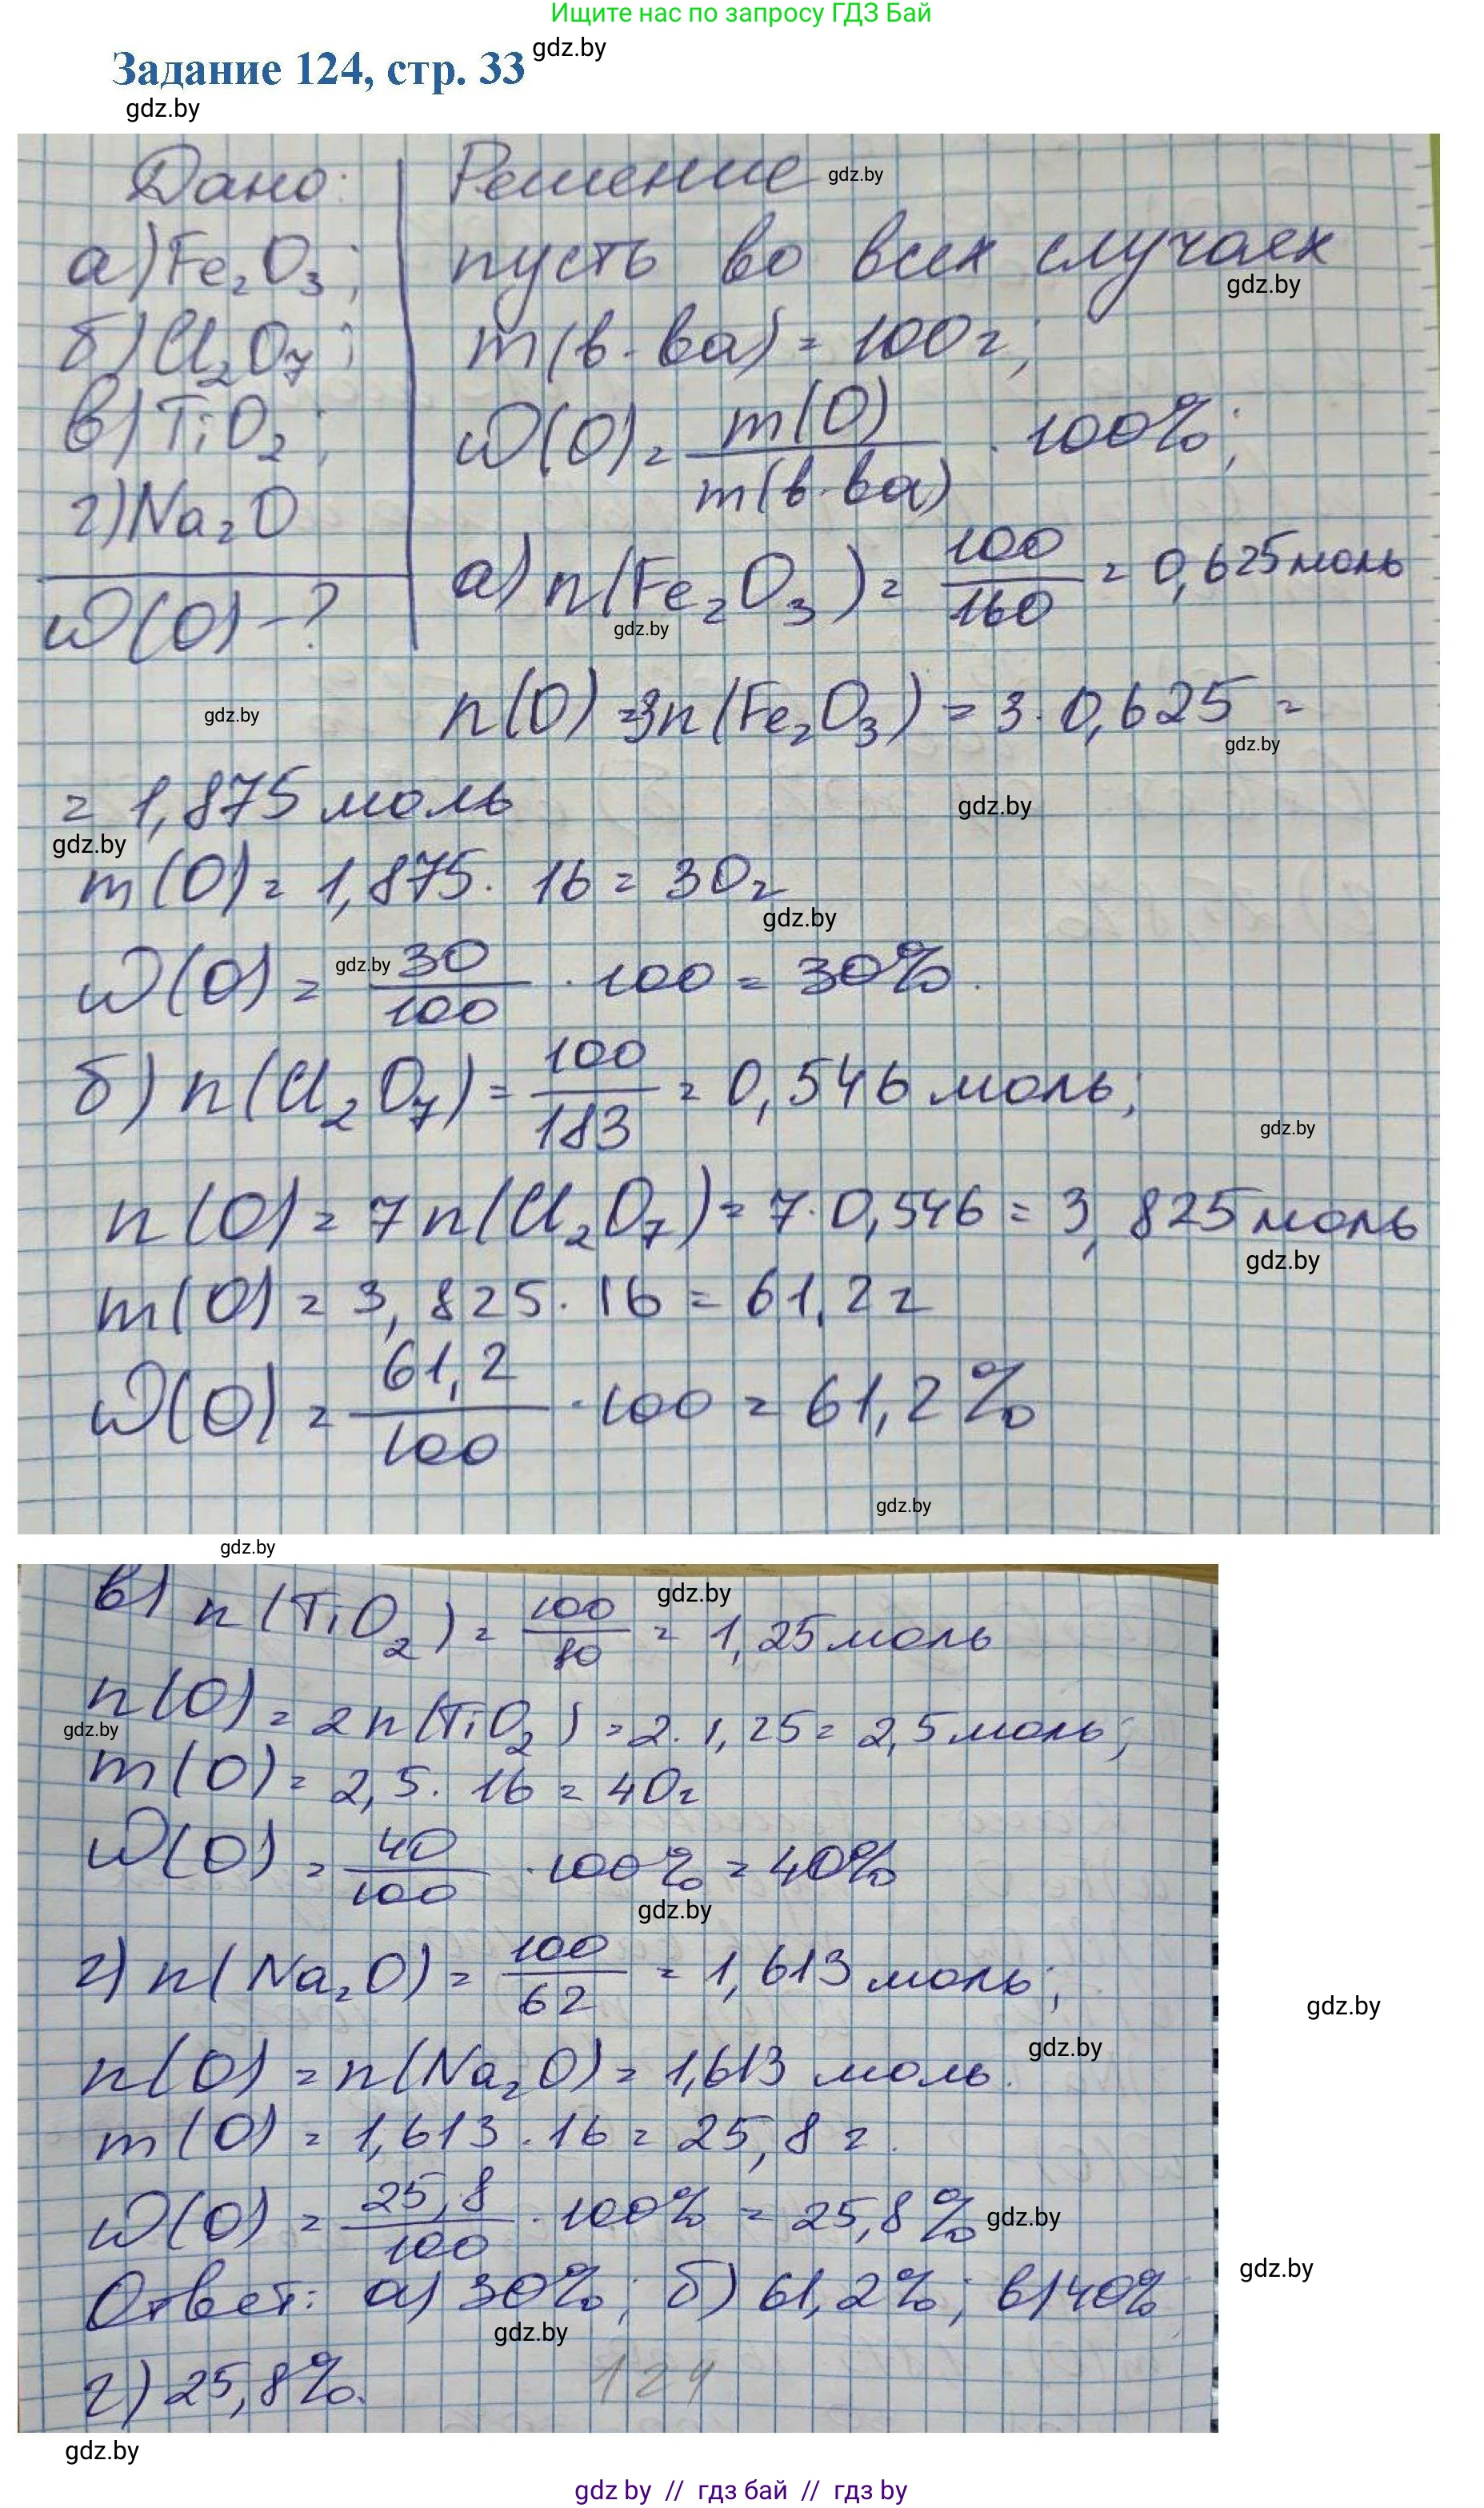 Ищите нас по запросу ГДЗ Бай
Задание 124, стр. 33
gdz.by
gdz.by
Дано: Решение
gdz.by
а) Fe₂O₃; пусть во всех случаях
gdz.by
б) Cl₂O₇; m(в-ва) = 100г;
в) TiO₂; W(O) = m(O)/m(в-ва) · 100%;
г) Na₂O
W(O) - ?
а) n(Fe₂O₃) = 100/160 = 0,625 моль
gdz.by
gdz.by
n(O) = 3n(Fe₂O₃) = 3 · 0,625 =
gdz.by
= 1,875 моль
gdz.by
gdz.by
m(O) = 1,875 · 16 = 30г
gdz.by
W(O) = 30/100 · 100 = 30%.
gdz.by
б) n(Cl₂O₇) = 100/183 = 0,546 моль;
gdz.by
n(O) = 7n(Cl₂O₇) = 7 · 0,546 = 3,825 моль
gdz.by
m(O) = 3,825 · 16 = 61,2 г
W(O) = 61,2/100 · 100 = 61,2%
gdz.by
gdz.by
в) n(TiO₂) = 100/80 = 1,25 моль
gdz.by
n(O) = 2n(TiO₂) = 2 · 1,25 = 2,5 моль;
gdz.by
m(O) = 2,5 · 16 = 40г
W(O) = 40/100 · 100% = 40%
gdz.by
г) n(Na₂O) = 100/62 = 1,613 моль;
gdz.by
gdz.by
n(O) = n(Na₂O) = 1,613 моль.
m(O) = 1,613 · 16 = 25,8 г.
W(O) = 25,8/100 · 100% = 25,8%
gdz.by
gdz.by
Ответ: а) 30%; б) 61,2%; в) 40%
gdz.by
г) 25,8%.
124
gdz.by
gdz by // гдз бай // гдз by